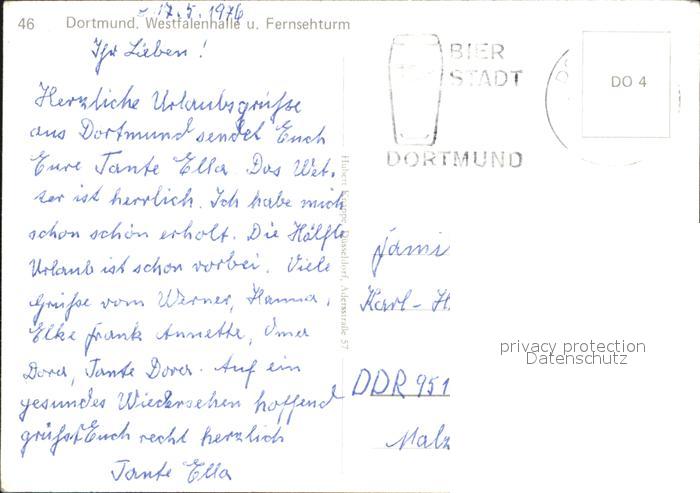 46 Dortmund. Westfalenhalle u. Fernsehturm
17.5.1976
Ihr Lieben!
Herzliche Urlaubsgrüße
aus Dortmund sendet Euch
Eure Tante Ella. Das Wet-
ter ist herrlich. Ich habe mich
schon schön erholt. Die Hälfte
Urlaub ist schon vorbei. Viele
Grüße vom Werner, Hanna,
Elke Frank Annette, Oma
Dora, Tante Dora. Auf ein
gesundes Wiedersehen hoffend
grüßt Euch recht herzlich
Tante Ella
Hubert Krappe, Düsseldorf, Adersstraße 57
BIER
STADT
DORTMUND
DO 4
Fami
Karl-H.
DDR 951
Malz
privacy protection
Datenschutz